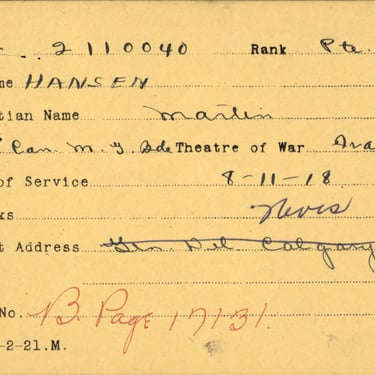 2110040 Rank Pte.
me HANSEN
tian Name Martin
Can. M. G. Bde Theatre of War
of Service 8-11-18.
ks Nevis
t Address Gen Del Calgary
No. B. Page 17131.
-2-21.M.